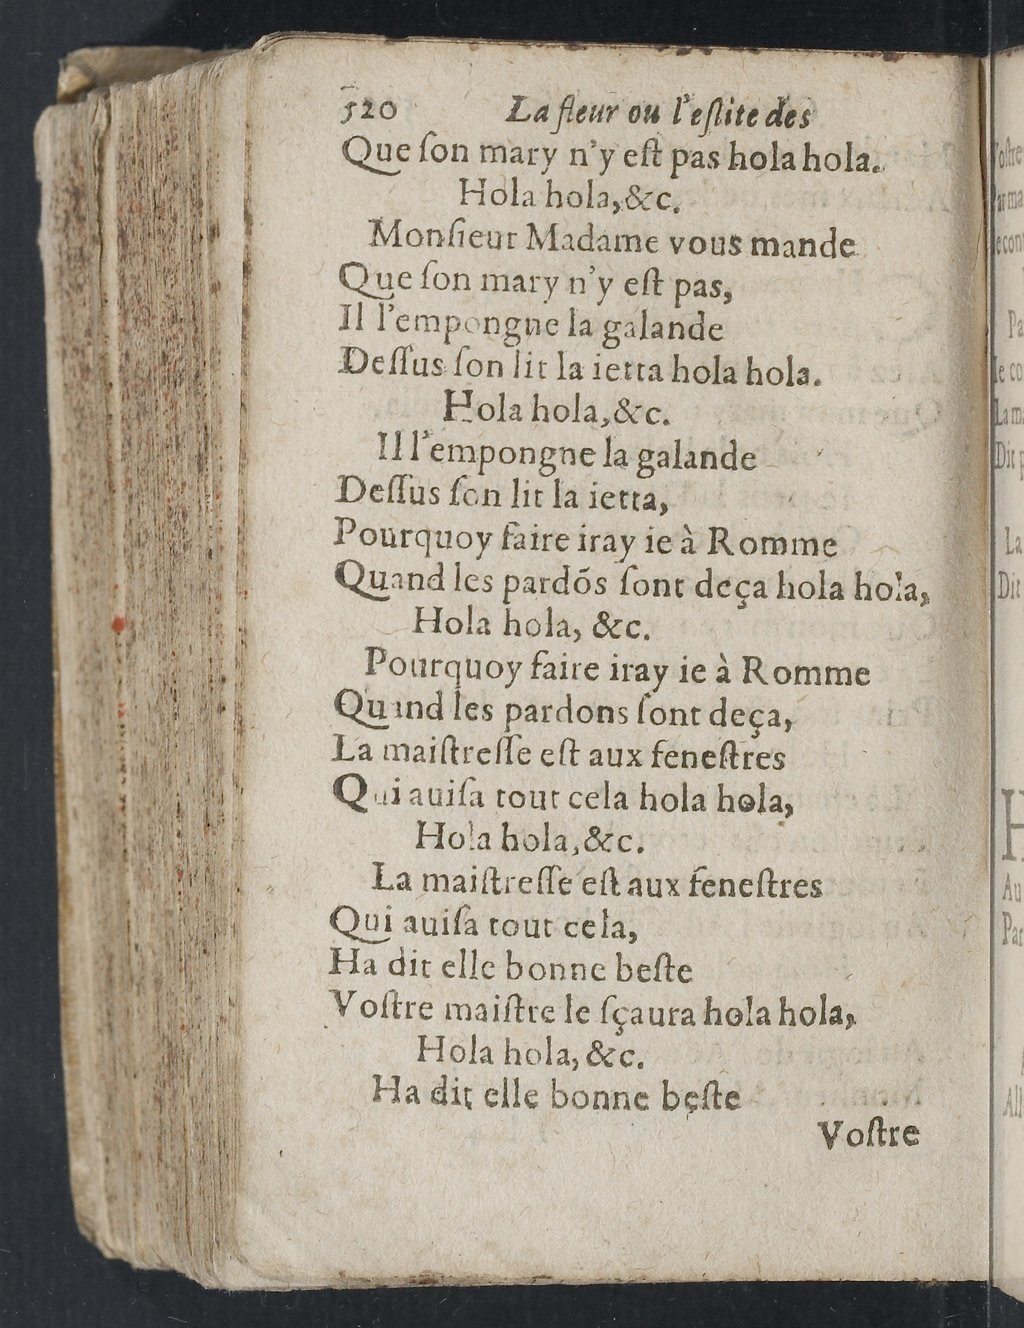 520 La fleur ou l'eſlite des
Que ſon mary n'y eſt pas hola hola.
Hola hola, &c.
Monſieur Madame vous mande
Que ſon mary n'y eſt pas,
Il l'empongne la galande
Deſſus ſon lit la ietta hola hola.
Hola hola, &c.
Il l'empongne la galande
Deſſus ſon lit la ietta,
Pourquoy faire iray ie à Romme
Quand les pardõs ſont deça hola hola,
Hola hola, &c.
Pourquoy faire iray ie à Romme
Quand les pardons ſont deça,
La maiſtreſſe eſt aux feneſtres
Qui auiſa tout cela hola hola,
Hola hola, &c.
La maiſtreſſe eſt aux feneſtres
Qui auiſa tout cela,
Ha dit elle bonne beſte
Voſtre maiſtre le ſçaura hola hola,
Hola hola, &c.
Ha dit elle bonne beſte
Voſtre